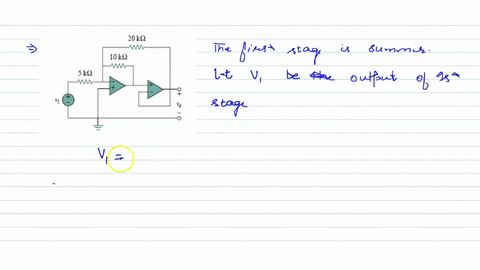 20 kΩ
⇒ The first stage is summer.
10 kΩ
5 kΩ
Let V₁ be the output of 1st
stage
+
−
V₁ =